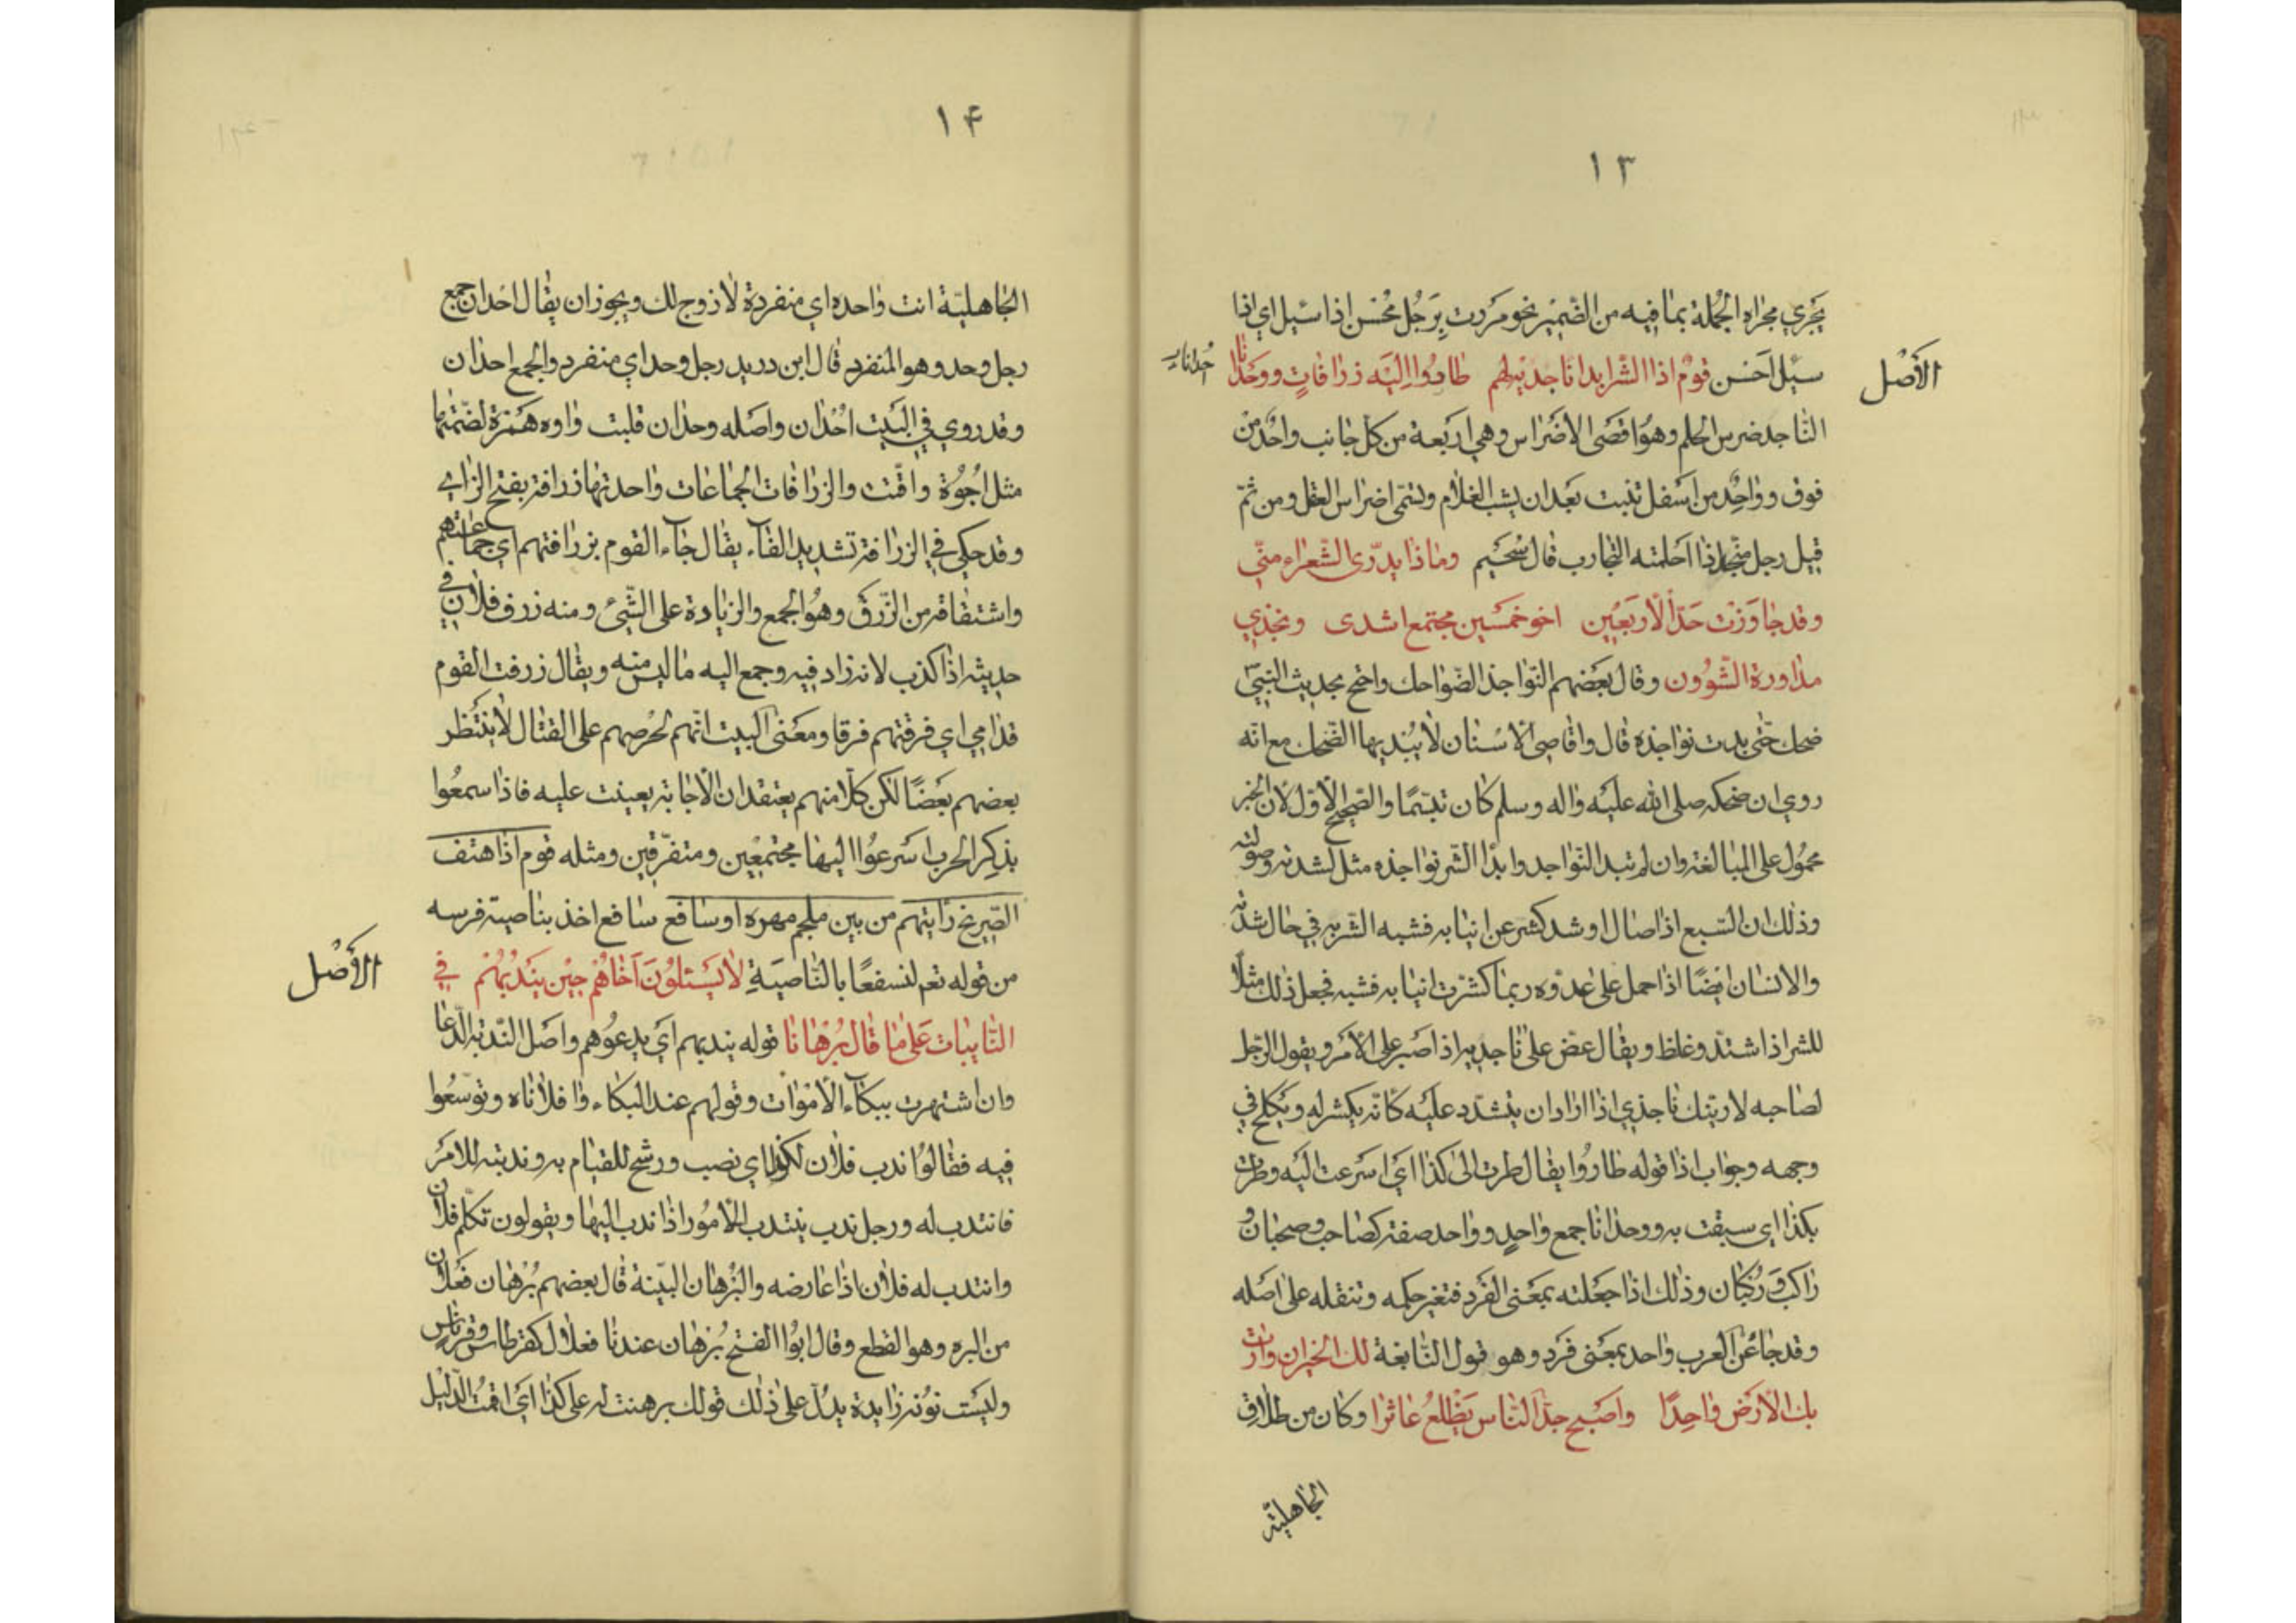 ١٣
يجري مجراه الجملة بما فيه من الضمير نحو مررت برجل محسن اذا سئل اي اذا
الأصل
سئل احسن قوم اذا الشر ابدا ناجذيه لهم طاروا اليه زرافات ووحدانا
الناجذ ضرس الحلم وهو اقصى الاضراس وهي اربعة من كل جانب واحد من
فوق وواحد من اسفل تنبت بعد ان يشب الغلام وتسمى اضراس العقل ومن ثم
قيل رجل منجذ اذا احلمته التجارب قال سحيم وماذا يدرى الشعراء منّي
وقد جاوزت حد الأربعين اخو خمسين مجتمع اشدى ونجذي
مداورة الشوون وقال بعضهم النواجذ الضواحك واحتج بحديث النبي
ضحك حتى بدت نواجذه قال واقاصي الاسنان لا يبديها الضحك مع انه
روي ان ضحكه صلى الله عليه واله وسلم كان تبسما والصحيح الاول لان الخبر
محمول على المبالغة وان لم تبد النواجد وابدا الشر نواجذه مثل لشدته وصولته
وذلك ان السبع اذا صال او شد كشر عن انيابه فشبه الشر به في حال شدته
والانسان ايضا اذا حمل على عدوه ربما كشرت انيابه فشبه فجعل ذلك مثلا
للشر اذا اشتد وغلظ ويقال عض على ناجذيه اذا صبر على الأمر ويقول الرجل
لصاحبه لارينك ناجذي اذا اراد ان يتشدد عليه كانه يكشر له ويكلح في
وجهه وجواب اذا قوله طاروا يقال طرت الى كذا اي اسرعت اليه وطرت
بكذا اي سبقت به ووحدانا جمع واحد وواحد صفة كصاحب وصحبان و
راكب وركبان وذلك اذا جعلته بمعنى الفرد فتغير حكمه وتنقله على اصله
وقد جاء عن العرب واحد بمعنى فرد وهو قول النابغة لك الخير ان وارت
بك الأرض واحدا واصبح جد الناس يظلع عاثرا وكان من طلاق
الجاهلية
١۴
الجاهلية انت واحده اي منفردة لا زوج لك ويجوز ان يقال احدان جمع
رجل وحد وهو المنفرد قال ابن دريد رجل وحد اي منفرد والجمع احدان
وقد روي في البيت احدان واصله وحدان قلبت واوه همزة لضمتها
مثل اجوة واقتت والزرافات الجماعات واحدتها زرافة بفتح الزاي
وقد حكي في الزرافة تشديد الفاء يقال جاء القوم بزرافتهم اي جماعتهم
واشتقاقه من الزرف وهو الجمع والزيادة على الشيء ومنه زرف فلان في
حديثه اذا كذب لانه زاد فيه وجمع اليه ما ليس منه ويقال زرفت القوم
قدامي اي فرقتهم فرقا ومعنى البيت انهم لحرصهم على القتال لا ينتظر
بعضهم بعضا لكن كلا منهم يعتقد ان الاجابة تعينت عليه فاذا سمعوا
بذكر الحرب اسرعوا اليها مجتمعين ومتفرقين ومثله قوم اذا هتف
الصريخ رايتهم من بين ملجم مهره او سافع سافع اخذ بناصية فرسه
من قوله تعم لنسفعا بالناصية لا يسئلون اخاهم حين يندبهم في
الأصل
النايبات على ما قال برهانا قوله يندبهم اي يدعوهم واصل الندبة الدعا
وان اشتهرت ببكاء الأموات وقولهم عند البكاء وا فلاناه وتوسعوا
فيه فقالوا ندب فلان لكذا اي نصب ورشح للقيام به وندبته للامر
فانتدب له ورجل ندب ينتدب للأمور اذا ندب اليها ويقولون تكلم فلان
وانتدب له فلان اذا عارضه والبرهان البينة قال بعضهم برهان فعلان
من البره وهو القطع وقال ابو الفتح برهان عندنا فعلال كقرطاس وقرناس
وليست نونه زايدة يدل على ذلك قولك برهنت له على كذا اي اقمت الدليل